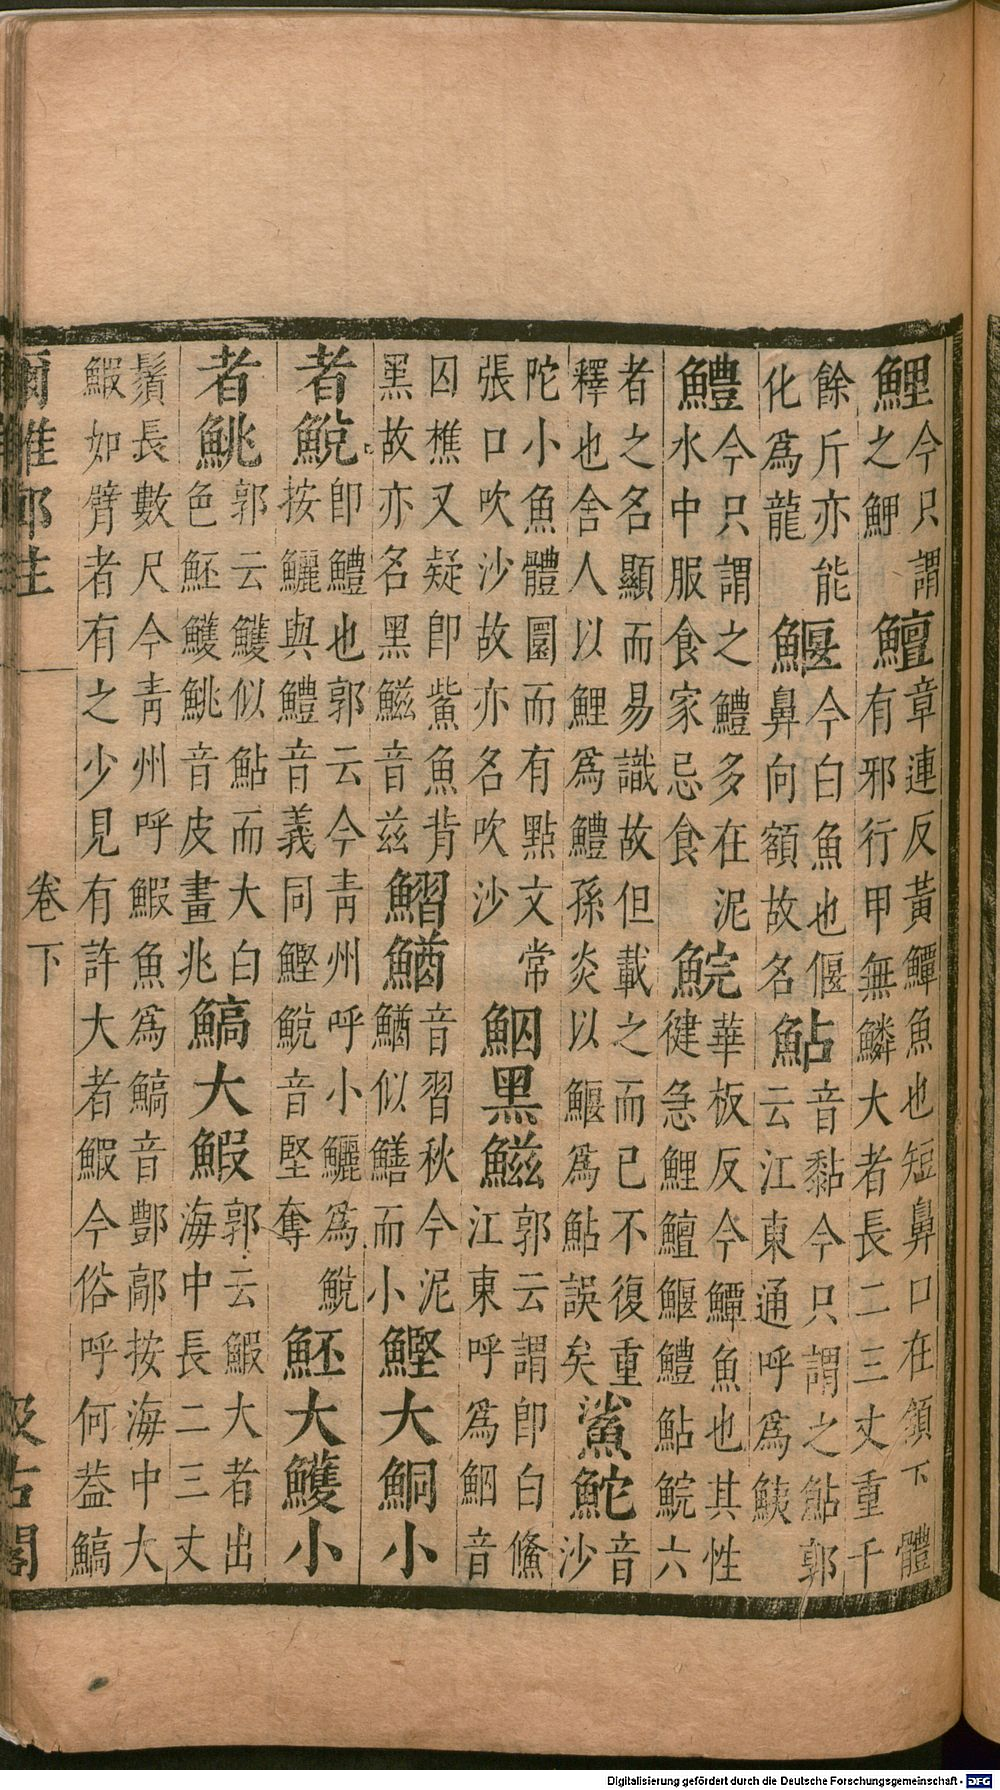 鯉今只謂之鯉鱣章連反黃鱏魚也短鼻口在頷下體有邪行甲無鱗大者長二三丈重千
餘斤亦能化為龍鰋今白魚也偃鼻向額故名鮎音黏今只謂之鮎郭云江東通呼為鮧
鱧今只謂之鱧多在泥水中服食家忌食鯇華板反今鱏魚也其性健急鯉鱣鰋鱧鮎鯇六
者之名顯而易識故但載之而已不復重釋也舍人以鯉為鱧孫炎以鰋為鮎誤矣鯊鮀音沙
陀小魚體圜而有點文常張口吹沙故亦名吹沙鮂黑鰦郭云謂即白鯈江東呼為鮂音
囚樵又疑即鮆魚背黑故亦名黑鰦音茲鰼鰌音習秋今泥鰌似鱔而小鰹大鮦小
者鮵即鱧也郭云今青州呼小鱺為鮵按鱺與鱧音義同鰹鮵音堅奪魾大鱯小
者鮡郭云鱯似鮎而大白色魾鱯鮡音皮畫兆鰝大鰕郭云鰕大者出海中長二三丈
鬚長數尺今青州呼鰕魚為鰝音酆鄗按海中大鰕如臂者有之少見有許大者鰕今俗呼何益鰝
爾雅鄭註 卷下 汲古閣
Digitalisierung gefördert durch die Deutsche Forschungsgemeinschaft - DFG